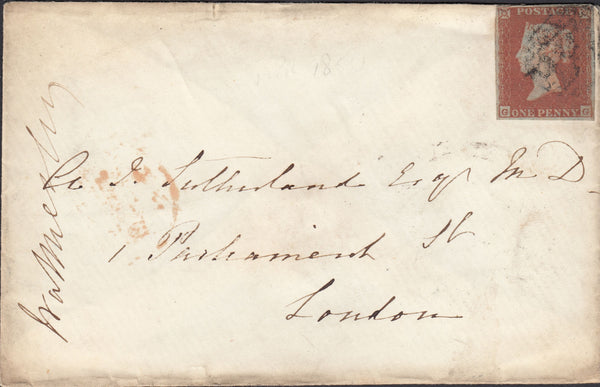 POSTAGE
G ONE PENNY G
A J Sutherland Esqr M D
1 Parliament St
London